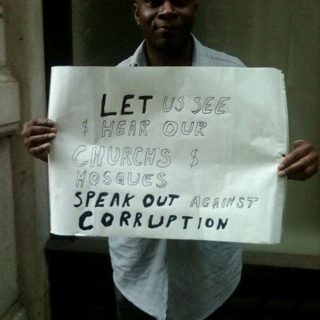 LET US SEE
$ HEAR OUR
CHURCHS $
MOSQUES
SPEAK OUT AGAINST
CORRUPTION